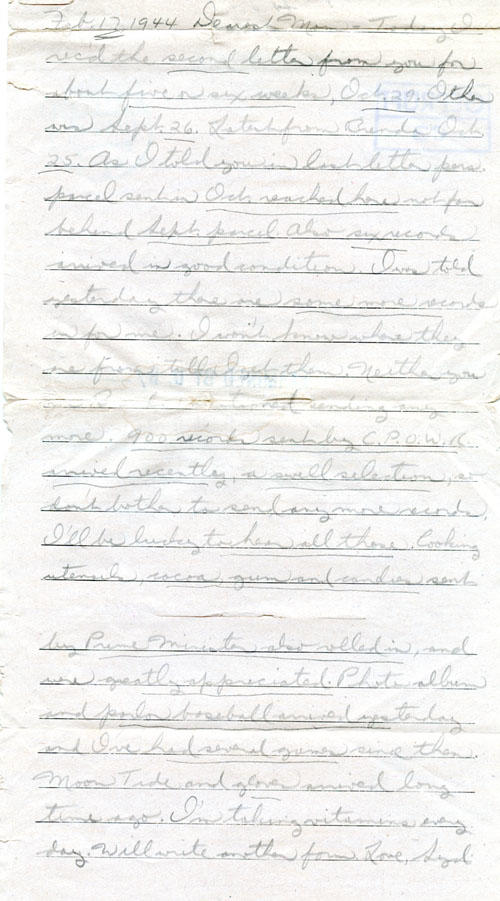 Feb. 17, 1944 Dearest Mum - Today I
rec'd the second letter from you for
about five or six weeks, Oct. 29. Other
was Sept. 26. Latest from Brenda Oct
25. As I told you in last letter pers.
parcel sent in Oct. reached here not far
behind Sept. parcel. Also six records
arrived in good condition. I was told
yesterday there are some more records
in for me. I won't know where they
are from till I get them. Neither you
mentioned sending any
more. 900 records sent by C.P.O.W.R.
arrived recently, a swell selection, so
don't bother to send any more records.
I'll be lucky to hear all those. Cooking
utensils, cocoa gum and candies sent
by Prime Minister also rolled in, and
were greatly appreciated. Photo album
and parlor baseball arrived yesterday
and I've had several games since then.
Moon Tide and gloves arrived long
time ago. I'm taking vitamins every
day. Will write another form. Love, Syd